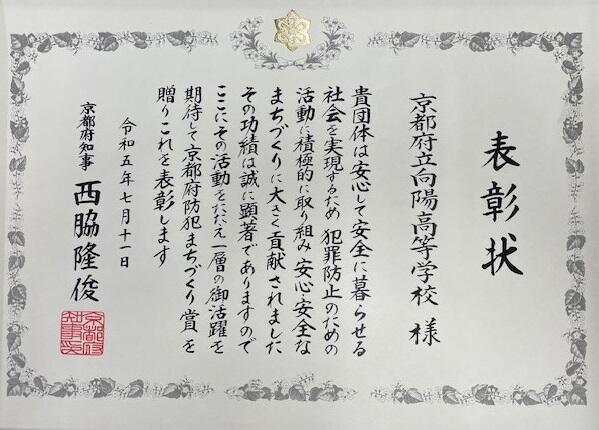 表彰状
京都府立向陽高等学校 様
貴団体は安心して安全に暮らせる
社会を実現するため 犯罪防止のための
活動に積極的に取り組み 安心・安全な
まちづくりに大きく貢献されました
その功績は誠に顕著でありますので
ここにその活動をたたえ一層の御活躍を
期待して京都府防犯まちづくり賞を
贈りこれを表彰します
令和五年七月十一日
京都府知事 西脇隆俊
京都府知事印